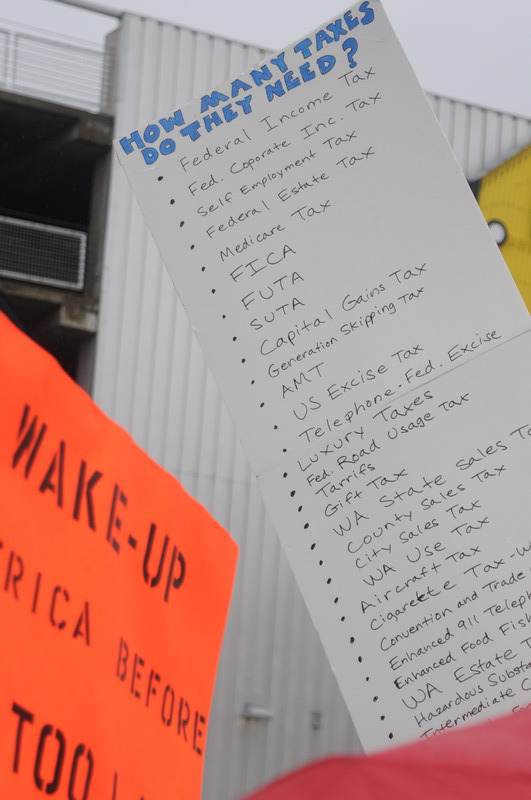 HOW MANY TAXES
DO THEY NEED?
• Federal Income Tax
• Fed. Coporate Inc. Tax
• Self Employment Tax
• Federal Estate Tax
• Medicare Tax
• FICA
• FUTA
• SUTA
• Capital Gains Tax
• Generation Skipping Tax
• AMT
• US Excise Tax
• Telephone. Fed. Excise
• Luxury Taxes
• Fed. Road Usage Tax
• Tarrifs
• Gift Tax
• WA State Sales
• County Sales Tax
• City Sales Tax
• WA Use Tax
• Aircraft Tax
• Cigarette Tax
• Convention and Trade
• Enhanced 911
• Enhanced Food
• WA Estate
• Hazardous
• Intermediate
WAKE-UP
BEFORE
TOO